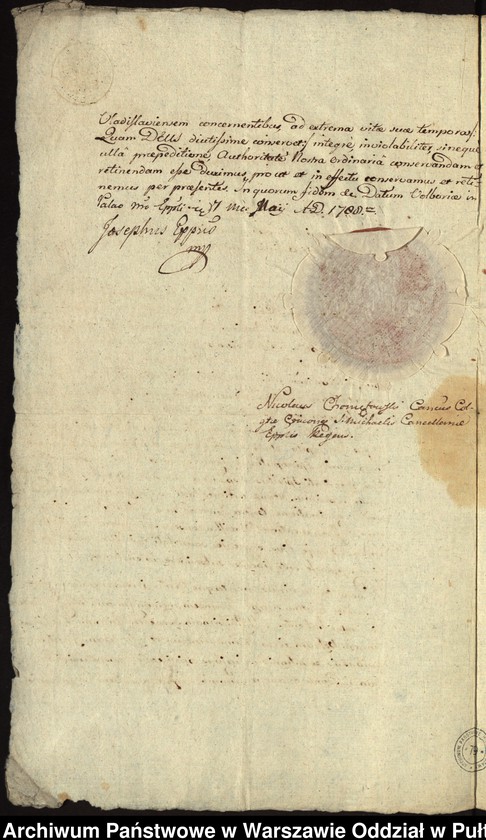 Vladislaviensem concernentibus ad extrema vitæ suæ tempora
Quam DEUS diutissime conservet, integre, inviolabiliter, sineque
ulla præpeditione Authoritate Nostra Ordinaria conservandam et
retinendam esse duximus, prout et in effectu conservamus et reti-
nemus per præsentes. In quorum fidem &c. Datum in
Palao nro Eppli Mai A.D. 1788.
Josephus Eppus
mp
Nicolaus Cancus Col-
S. Michaelis Cancellariæ
Epplis Regens.
79
Archiwum Państwowe w Warszawie Oddział w Puł